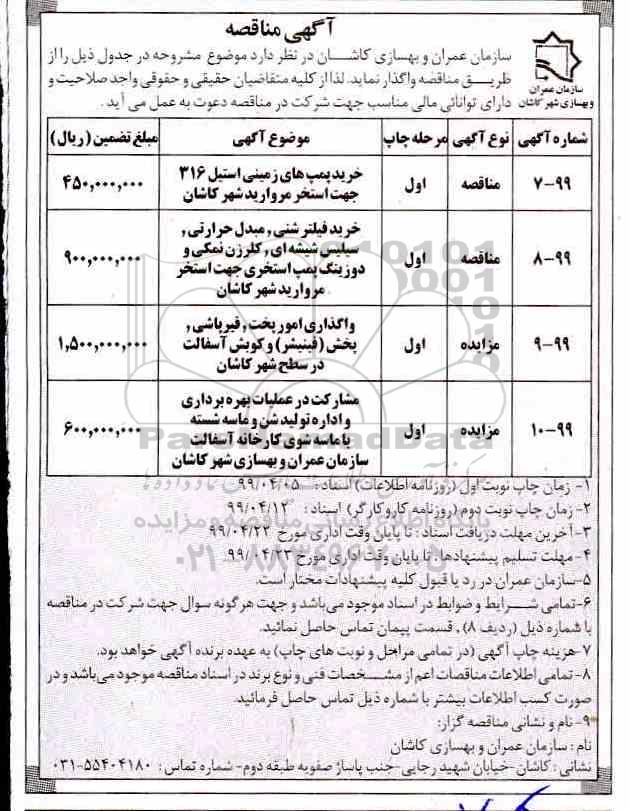 آگهی مناقصه
سازمان عمران و بهسازی کاشان در نظر دارد موضوع مشروحه در جدول ذیل را از
طریق مناقصه واگذار نماید. لذا از کلیه متقاضیان حقیقی و حقوقی واجد صلاحیت و
دارای توانائی مالی مناسب جهت شرکت در مناقصه دعوت به عمل می آید.
سازمان عمران
و بهسازی شهر کاشان
شماره آگهی نوع آگهی مرحله چاپ موضوع آگهی مبلغ تضمین (ریال)
۷-۹۹ مناقصه اول خرید پمپ های زمینی استیل ۳۱۶ ۴۵۰,۰۰۰,۰۰۰
جهت استخر مروارید شهر کاشان
۸-۹۹ مناقصه اول خرید فیلتر شنی , مبدل حرارتی , ۹۰۰,۰۰۰,۰۰۰
سیلیس شیشه ای , کلرزن نمکی و
دوزینگ پمپ استخری جهت استخر
مروارید شهر کاشان
۹-۹۹ مزایده اول واگذاری امور پخت , قیرپاشی , ۱,۵۰۰,۰۰۰,۰۰۰
پخش (فینیشر) و کوبش آسفالت
در سطح شهر کاشان
۱۰-۹۹ مزایده اول مشارکت در عملیات بهره برداری ۶۰۰,۰۰۰,۰۰۰
و اداره تولید شن و ماسه شسته
با ماسه شوی کارخانه آسفالت
سازمان عمران و بهسازی شهر کاشان
۱- زمان چاپ نوبت اول (روزنامه اطلاعات) اسناد: ۹۹/۰۴/۰۵
۲- زمان چاپ نوبت دوم (روزنامه کاروکارگر) اسناد: ۹۹/۰۴/۱۲
۳- آخرین مهلت دریافت اسناد: تا پایان وقت اداری مورخ ۹۹/۰۴/۲۲
۴- مهلت تسلیم پیشنهادها: تا پایان وقت اداری مورخ ۹۹/۰۴/۲۳
۵-سازمان عمران در رد یا قبول کلیه پیشنهادات مختار است.
۶-تمامی شرایط و ضوابط در اسناد موجود می باشد و جهت هرگونه سوال جهت شرکت در مناقصه
با شماره ذیل (ردیف ۸) , قسمت پیمان تماس حاصل نمائید.
۷-هزینه چاپ آگهی (در تمامی مراحل و نوبت های چاپ) به عهده برنده آگهی خواهد بود.
۸-تمامی اطلاعات مناقصات اعم از مشخصات فنی و نوع برند در اسناد مناقصه موجود می باشد و در
صورت کسب اطلاعات بیشتر با شماره ذیل تماس حاصل فرمائید.
۹-نام و نشانی مناقصه گزار:
نام: سازمان عمران و بهسازی کاشان
نشانی: کاشان-خیابان شهید رجایی-جنب پاساژ صفویه طبقه دوم- شماره تماس: ۵۵۴۰۴۱۸۰-۰۳۱